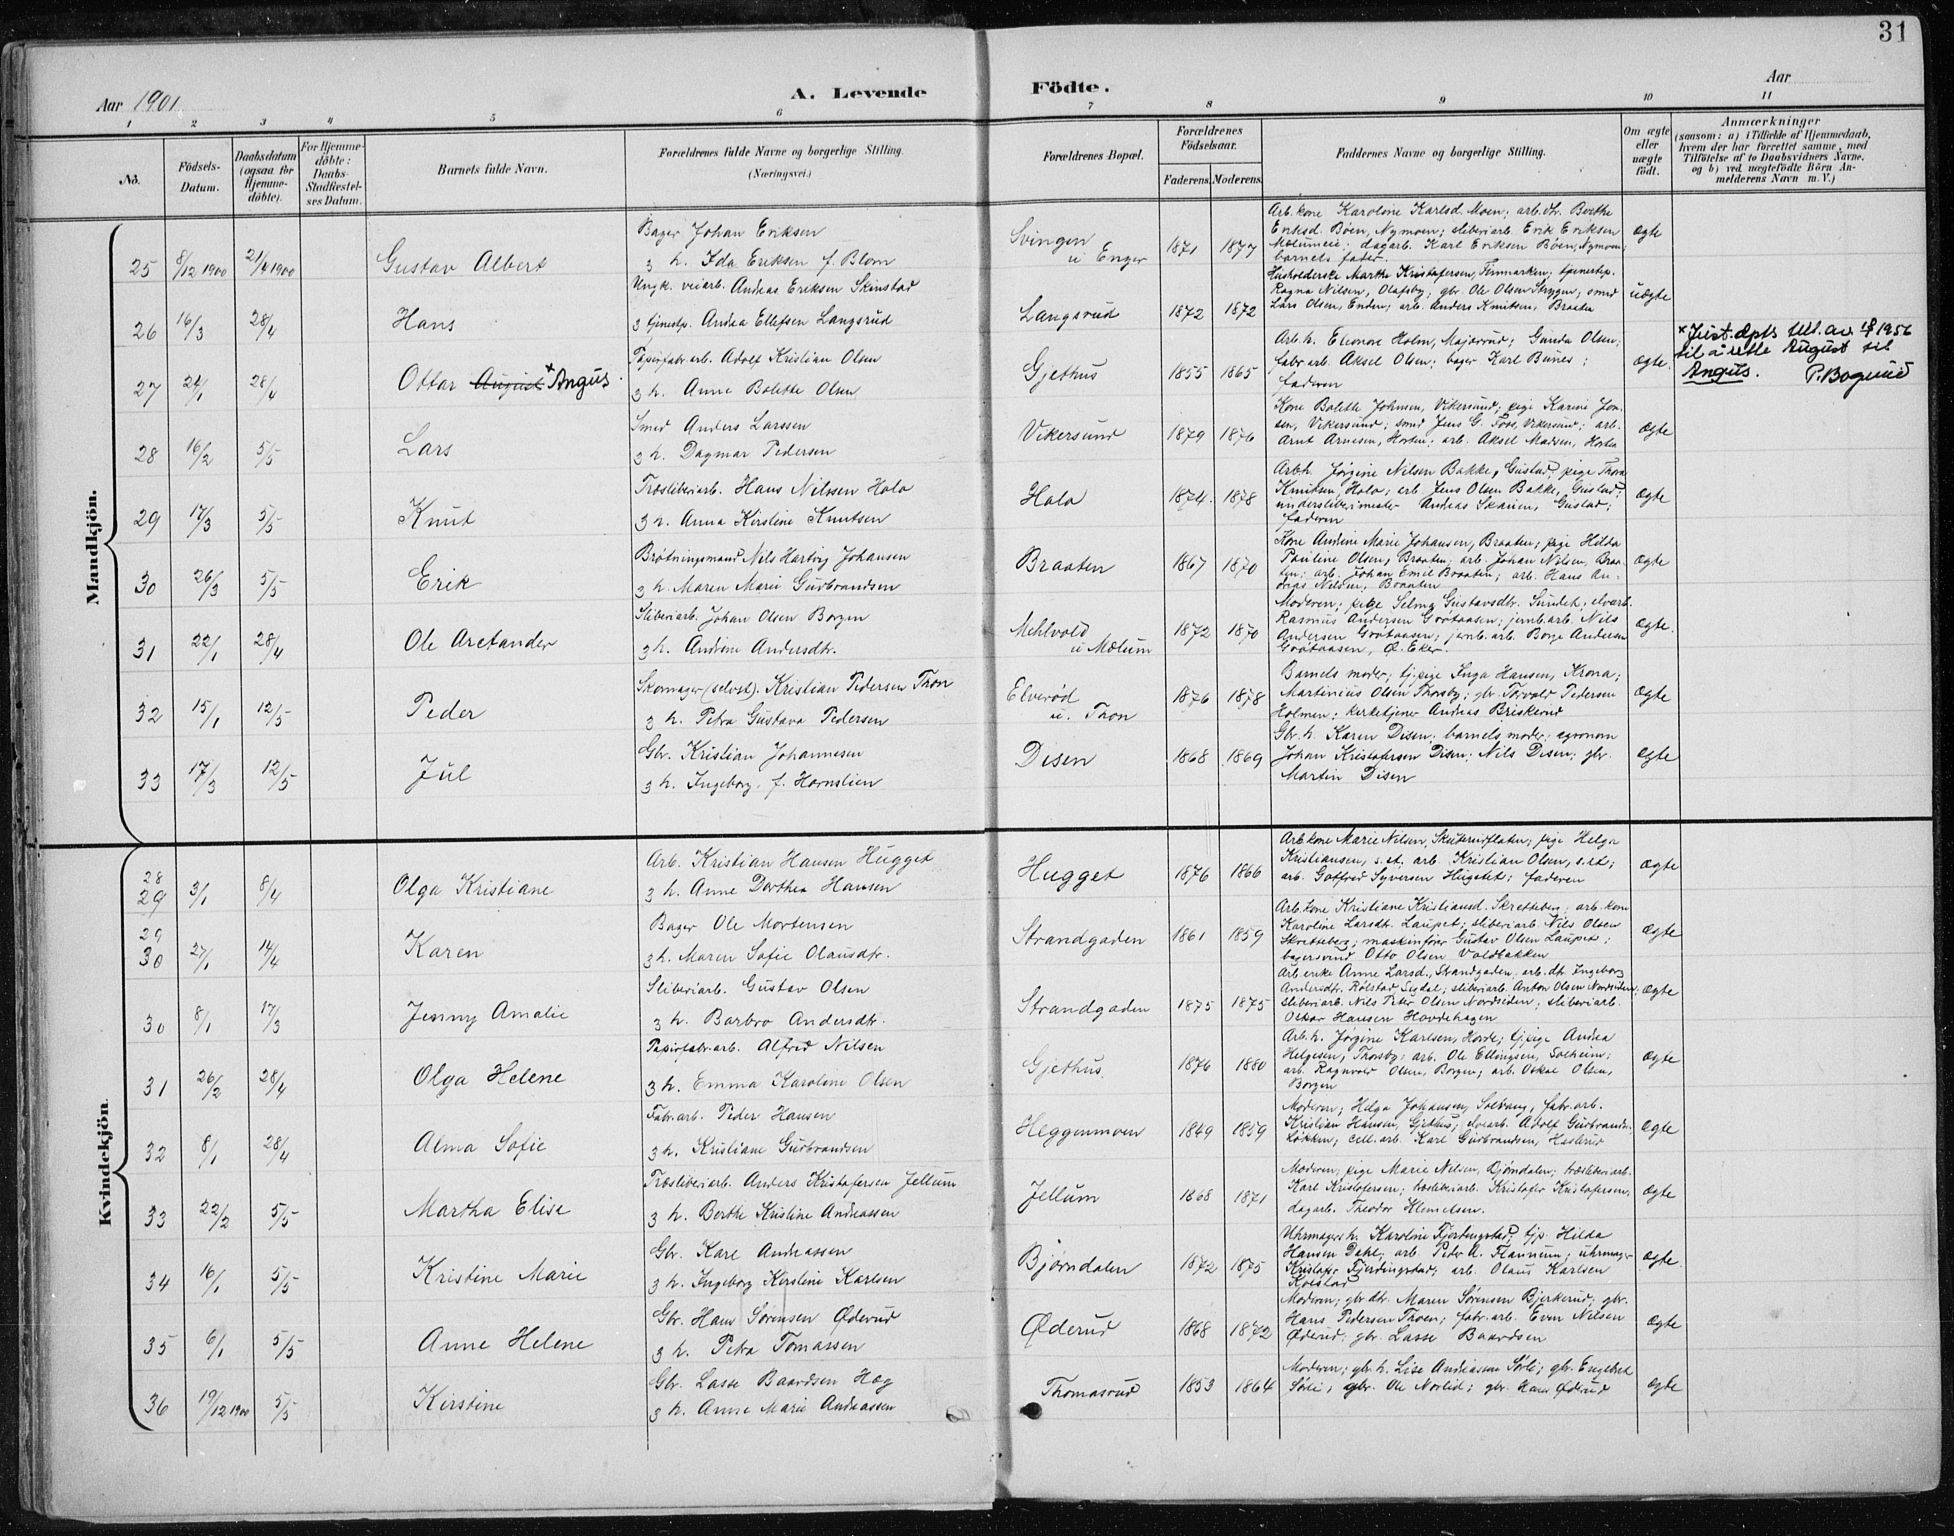 31
Aar 1901
A. Levende Födte.
Aar
1 2 3 4 5 6 7 8 9 10 11
No.
Födsels-Datum.
Daabsdatum (ogsaa for Hjemmedöbte).
For Hjemmedöbte: Daabs-Stadfæstelses Datum.
Barnets fulde Navn.
Forældrenes fulde Navne og borgerlige Stilling.
(Næringsvei.)
Forældrenes Bopæl.
Forældrenes Födselsaar.
Faderens. Moderens.
Faddernes Navne og borgerlige Stilling.
Om ægte eller uægte födt.
Anmærkninger
(saasom: a) i Tilfælde af Hjemmedaab, hvem der har forrettet samme, med Tilföielse af to Daabsvidners Navne, og b) ved uægtefödte Börn Anmelderens Navn m. V.)
Mandkjön.
25 8/12 1900 21/4 1900 Gustav Albert
Bager Johan Eriksen
3 h. Ida Eriksen f. Blom
Svingen u Enger 1871 1877
Arb. kone Karoline Karlsd. Moen; arb. dtr. Berthe
Eriksd. Böen, Nymoen; sliberiarb. Erik Eriksen
Mælumeie; dagarb. Karl Eriksen Böen, Nymoen;
barnets fader.
ægte
26 16/3 28/4 Hans
Ungk. veiarb. Andreas Eriksen Skinstad
3 tjenestp. Andrea Ellefsen Langsrud
Langsrud 1872 1872
Husholderske Marthe Kristafersen, Finmarken; tjenestep.
Ragna Nilsen, Olafsby; gbr. Ole Olsen Strygen; smed
Lars Olsen, Enden; arb. Anders Knutsen, Braaten
uægte
27 24/1 28/4 Ottar August × Angus.
Papirfabr.arb. Adolf Kristian Olsen
3 h. Anne Bolette Olsen
Gjethus 1855 1865
Arb. h. Eleonore Holm, Majorrud; Gunda Olsen;
fabr arb. Aksel Olsen; bager Karl Bunes;
faderen
ægte.
× Just.dpts till. av 1956
til å rette August til
Angus. P. Bogerud
28 16/2 5/5 Lars
Smed Anders Larssen
3 h. Dagmar Pedersen
Vikersund 1879 1876
Kone Bolette Johnsen, Vikersund; pige Karine Jon-
sen, Vikersund; smed Jens G. Foss, Vikersund; arb.
Arnt Arnesen, Horten; arb. Aksel Madsen, Horten
ægte
29 17/3 5/5 Knut
Træsliberiarb. Hans Nilssen Hola
3 h. Anna Kirstine Knutsen
Hola 1874. 1878
Arb h. Jørgine Nilsen Bakke, Gustad; pige Thora
Knutsen, Hola; arb Jens Olsen Bakke, Gustad;
undersliberimester Andreas Skauen, Gustad;
faderen
ægte
30 26/3 5/5 Erik
Brøtningsmand Nils Hartvig Johansen
3 h. Maren Marie Gudbrandsen
Braaten 1867 1870
Kone Andrine Marie Johansen, Braaten; pige Hilda
Pauline Olsen, Braaten; arb. Johan Nilsen, Braa-
ten; arb. Johan Emil Braaten; arb. Hans An-
dreas Nilsen, Braaten
ægte
31 22/1 28/4 Ole Aretander
Sliberiarb. Johan Olsen Borgen
3 h. Andrine Andersdtr.
Mehlvold u Mælum 1872 1870
Moderen; pige Selma Gustavsdtr. Sundet, elvarb.
Rasmus Andersen Grøtaasen; jernb.arb. Nils
Andersen Grøtaasen; jernb.arb. Borge Andersen
Grøtaasen, Ø. Eker.
ægte.
32 15/1 12/5 Peder
Skomager (selvst). Kristian Pedersen Thon
3 h. Petra Gustava Pedersen
Elverød u. Thon 1876 1878
Barnets moder; tj.pige Inga Hansen, Krona;
Martinius Olsen Thorsby; gbr. Torvald Pedersen
Holmen; kirketjener Andreas Briskerud
ægte
33 17/3 12/5 Jul
Gbr. Kristian Johannesen
3 h. Ingeborg f. Hornslien
Disen 1868 1869
Gbr. h. Karen Disen; barnets moder; agronom
Johan Kristofersen Disen; Nils Disen; gbr.
Martin Disen
ægte
Kvindekjön.
28
29 3/1 8/4 Olga Kristiane
Arb. Kristian Hansen Hugget
3 h. Anne Dorthea Hansen
Hugget 1876 1866
Arb. kone Marie Nilsen, Skuterudflaten; pige Helga
Kristiansen, s.st; arb Kristian Olsen, s.st;
arb. Gotfred Syversen Hugstet; faderen
ægte
29
30 27/1 14/4 Karen
Bager Ole Mortensen
3 h. Maren Sofie Olausdtr.
Strandgaden 1861 1859
Arb. kone Kristiane Kristiansd. Skretteberg; arb. kone
Karoline Larsdtr. Laupet; sliberiarb Nils Olsen
Skretteberg; maskinfører Gustav Olsen Laupet;
bagersvend Otto Olsen Voldbakken
ægte
30 8/1 17/3 Jenny Amalie
Sliberiarb. Gustav Olsen
3 h. Barbro Andersdtr.
Strandgaden 1875 1875
Arb. enke Anne Larsd., Strandgaden; arb. dtr. Ingeborg
Andersdtr. Rolstad Sigdal; sliberiarb. Anton Olsen Nordsiden;
sliberiarb. Nils Peter Olsen Nordsiden; sliberiarb.
Oskar Hansen Hovdehagen
ægte
31 26/2 28/4 Olga Helene
Papirfabr.arb. Alfred Nilsen
3 h. Emma Karoline Olsen
Gjethus. 1876 1880
Arb. h. Jørgine Karlsen, Horde; tj.pige Andrea
Helgesen, Thorsby; arb. Ole Ellingsen, Solheim;
arb. Ragnvald Olsen, Borgen; arb. Oskar Olsen,
Borgen
ægte
32 8/1 28/4 Alma Sofie
Fabr.arb. Peder Hansen
3 h. Kristiane Gudbrandsen
Heggenmoen 1849 1859
Moderen; Helga Johansen, Solvang; fabr.arb.
Kristian Hansen, Gjethus; elvearb. Adolf Gudbrandsen
Løkken; cell.arb. Karl Gudbrandsen, Haslerud
ægte
33 22/2 5/5 Martha Elise
Træsliberiarb. Anders Kristofersen Jellum
3 h. Berthe Kristine Andreassen
Jellum 1868 1871
Moderen; pige Marie Nilsen, Bjørndalen; træsliberiarb.
Karl Kristofersen; træsliberiarb. Kristofer Kristofersen;
dagarb. Theodor Klemetsen.
ægte
34 16/1 5/5 Kristine Marie
Gbr. Karl Andreassen
3 h. Ingeborg Kirstine Karlsen
Bjørndalen 1872 1875
Uhrmager h. Karoline Fjerdingstad, tj.p. Hilda
Hansen Dahl; arb Peder A. Flannum; uhrmager
Kristofer Fjerdingstad; arb. Olaus Karlsen
Kolstad
ægte.
35 6/1 5/5 Anne Helene
Gbr. Hans Sørensen Øderud
3 h. Petra Tomassen
Øderud 1868 1872
Moderen; gbr.dtr. Maren Sørensen Bjerkerud; gbr.
Hans Pedersen Thoen; fabr.arb. Even Nilsen
Øderud; gbr. Lasse Baardsen
ægte
36 19/12 1900 5/5 Kirstine
Gbr. Lasse Baardsen Hog
3 h. Anne Marie Andreassen
Thomasrud 1853 1864
Moderen; gbr. h. Lise Andreassen Sørli; gbr. Engebret
Sørli; gbr. Ole Norlid; gbr Hans Øderud
ægte